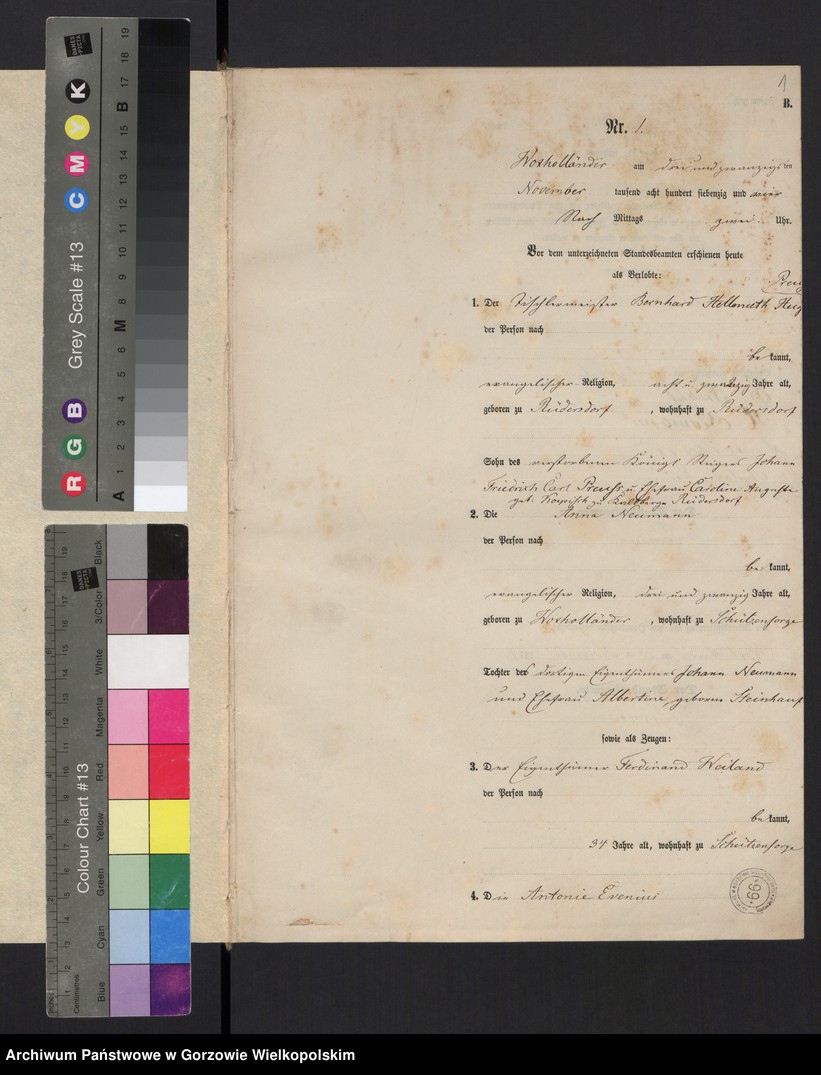 1
B.
Nr. 1.
Woxholländer am drei und zwanzigsten
November tausend acht hundert siebenzig und vier
Nach Mittags zwei Uhr.
Vor dem unterzeichneten Standesbeamten erschienen heute
als Verlobte:
Preuß
1. Der Tischlermeister Bernhard Hellmuth Hug
der Person nach
bekannt,
evangelischer Religion, acht u. zwanzig Jahre alt,
geboren zu Rüdersdorf, wohnhaft zu Rüdersdorf
Sohn des verstorbenen Königl Johann
Friedrich Carl Preuß u Ehefrau Caroline Auguste
geb. zu Kalkberge Rüdersdorf
2. Die Anna Neumann
der Person nach
bekannt,
evangelischer Religion, drei und zwanzig Jahre alt,
geboren zu Woxholländer, wohnhaft zu Schützensorge
Tochter des dortigen Eigenthümers Johann Neumann
und Ehefrau Albertine, geborene Steinhauf
sowie als Zeugen:
3. Der Eigenthümer Ferdinand Weiland
der Person nach
bekannt,
34 Jahre alt, wohnhaft zu Schützensorge
4. Die Antonie
66
Grey Scale #13
R G B C M Y K
A 1 2 3 4 5 6 M 8 9 10 11 12 13 14 15 B 17 18 19
DANES PICTA
Colour Chart #13
Blue Cyan Green Yellow Red Magenta White 3/Color Black
Centimetres
Archiwum Państwowe w Gorzowie Wielkopolskim